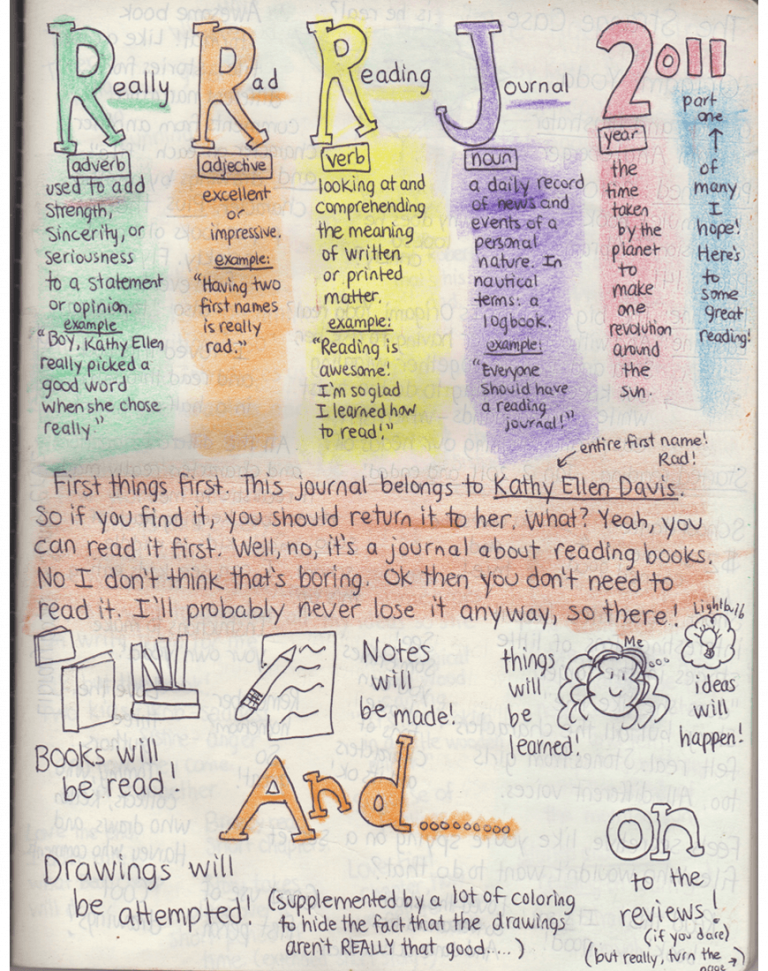 Really Rad Reading Journal 2011
part
one
adverb
used to add
strength,
sincerity, or
seriousness
to a statement
or opinion.
example
"Boy, Kathy Ellen
really picked a
good word
when she chose
really."
adjective
excellent
or
impressive.
example:
"Having two
first names
is really
rad."
verb
looking at and
comprehending
the meaning
of written
or printed
matter.
example:
"Reading is
awesome!
I'm so glad
I learned how
to read!"
noun
a daily record
of news and
events of a
personal
nature. In
nautical
terms: a
logbook.
example:
"Everyone
should have
a reading
journal!"
year
the
time
taken
by the
planet
to
make
one
revolution
around
the
sun.
of
many
I
hope!
Here's
to
some
great
reading!
entire first name!
Rad!
First things first. This journal belongs to Kathy Ellen Davis.
So if you find it, you should return it to her. What? Yeah, you
can read it first. Well, no, it's a journal about reading books.
No I don't think that's boring. Ok then you don't need to
read it. I'll probably never lose it anyway, so there!
Books will
be read!
Notes
will
be made!
things
will
be
learned!
Me
Lightbulb
ideas
will
happen!
And........
Drawings will
be attempted!
(Supplemented by a lot of coloring
to hide the fact that the drawings
aren't REALLY that good....)
on
to the
reviews!
(if you dare)
(but really, turn the